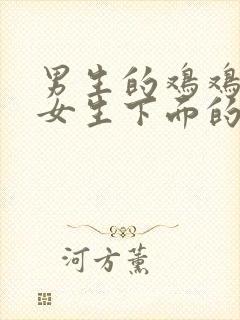 男生的鸡鸡
女生下面的
河方薰